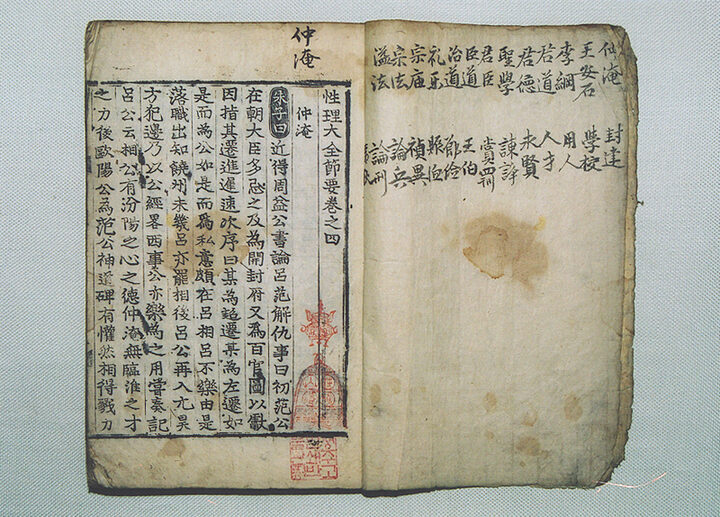 仲淹 封建
王安石 學校
李綱 用人
君道 人才
君德 求賢
聖學 諫諍
君臣 賞罰
臣道 王伯
治道 節儉
礼乐 賑恤
宗庙 禎異
宗法 論兵
溢法 論刑
仲淹
性理大全節要卷之四
仲淹
朱子曰近得周益公書論呂范解仇事曰初范公
在朝大臣多忌之及為開封府又為百官圖以獻
因指其遷進遲速次序曰某為超遷某為左遷如
是而為公如是而爲私意頗在呂相呂不樂由是
落職出知饒州未幾呂亦罷相後呂公再入元昊
方犯邊乃以公經畧西事公亦樂為之用嘗奏記
呂公云相公有汾陽之心之德仲淹無臨淮之才
之力後歐陽公為范公神道碑有懽然相得戮力